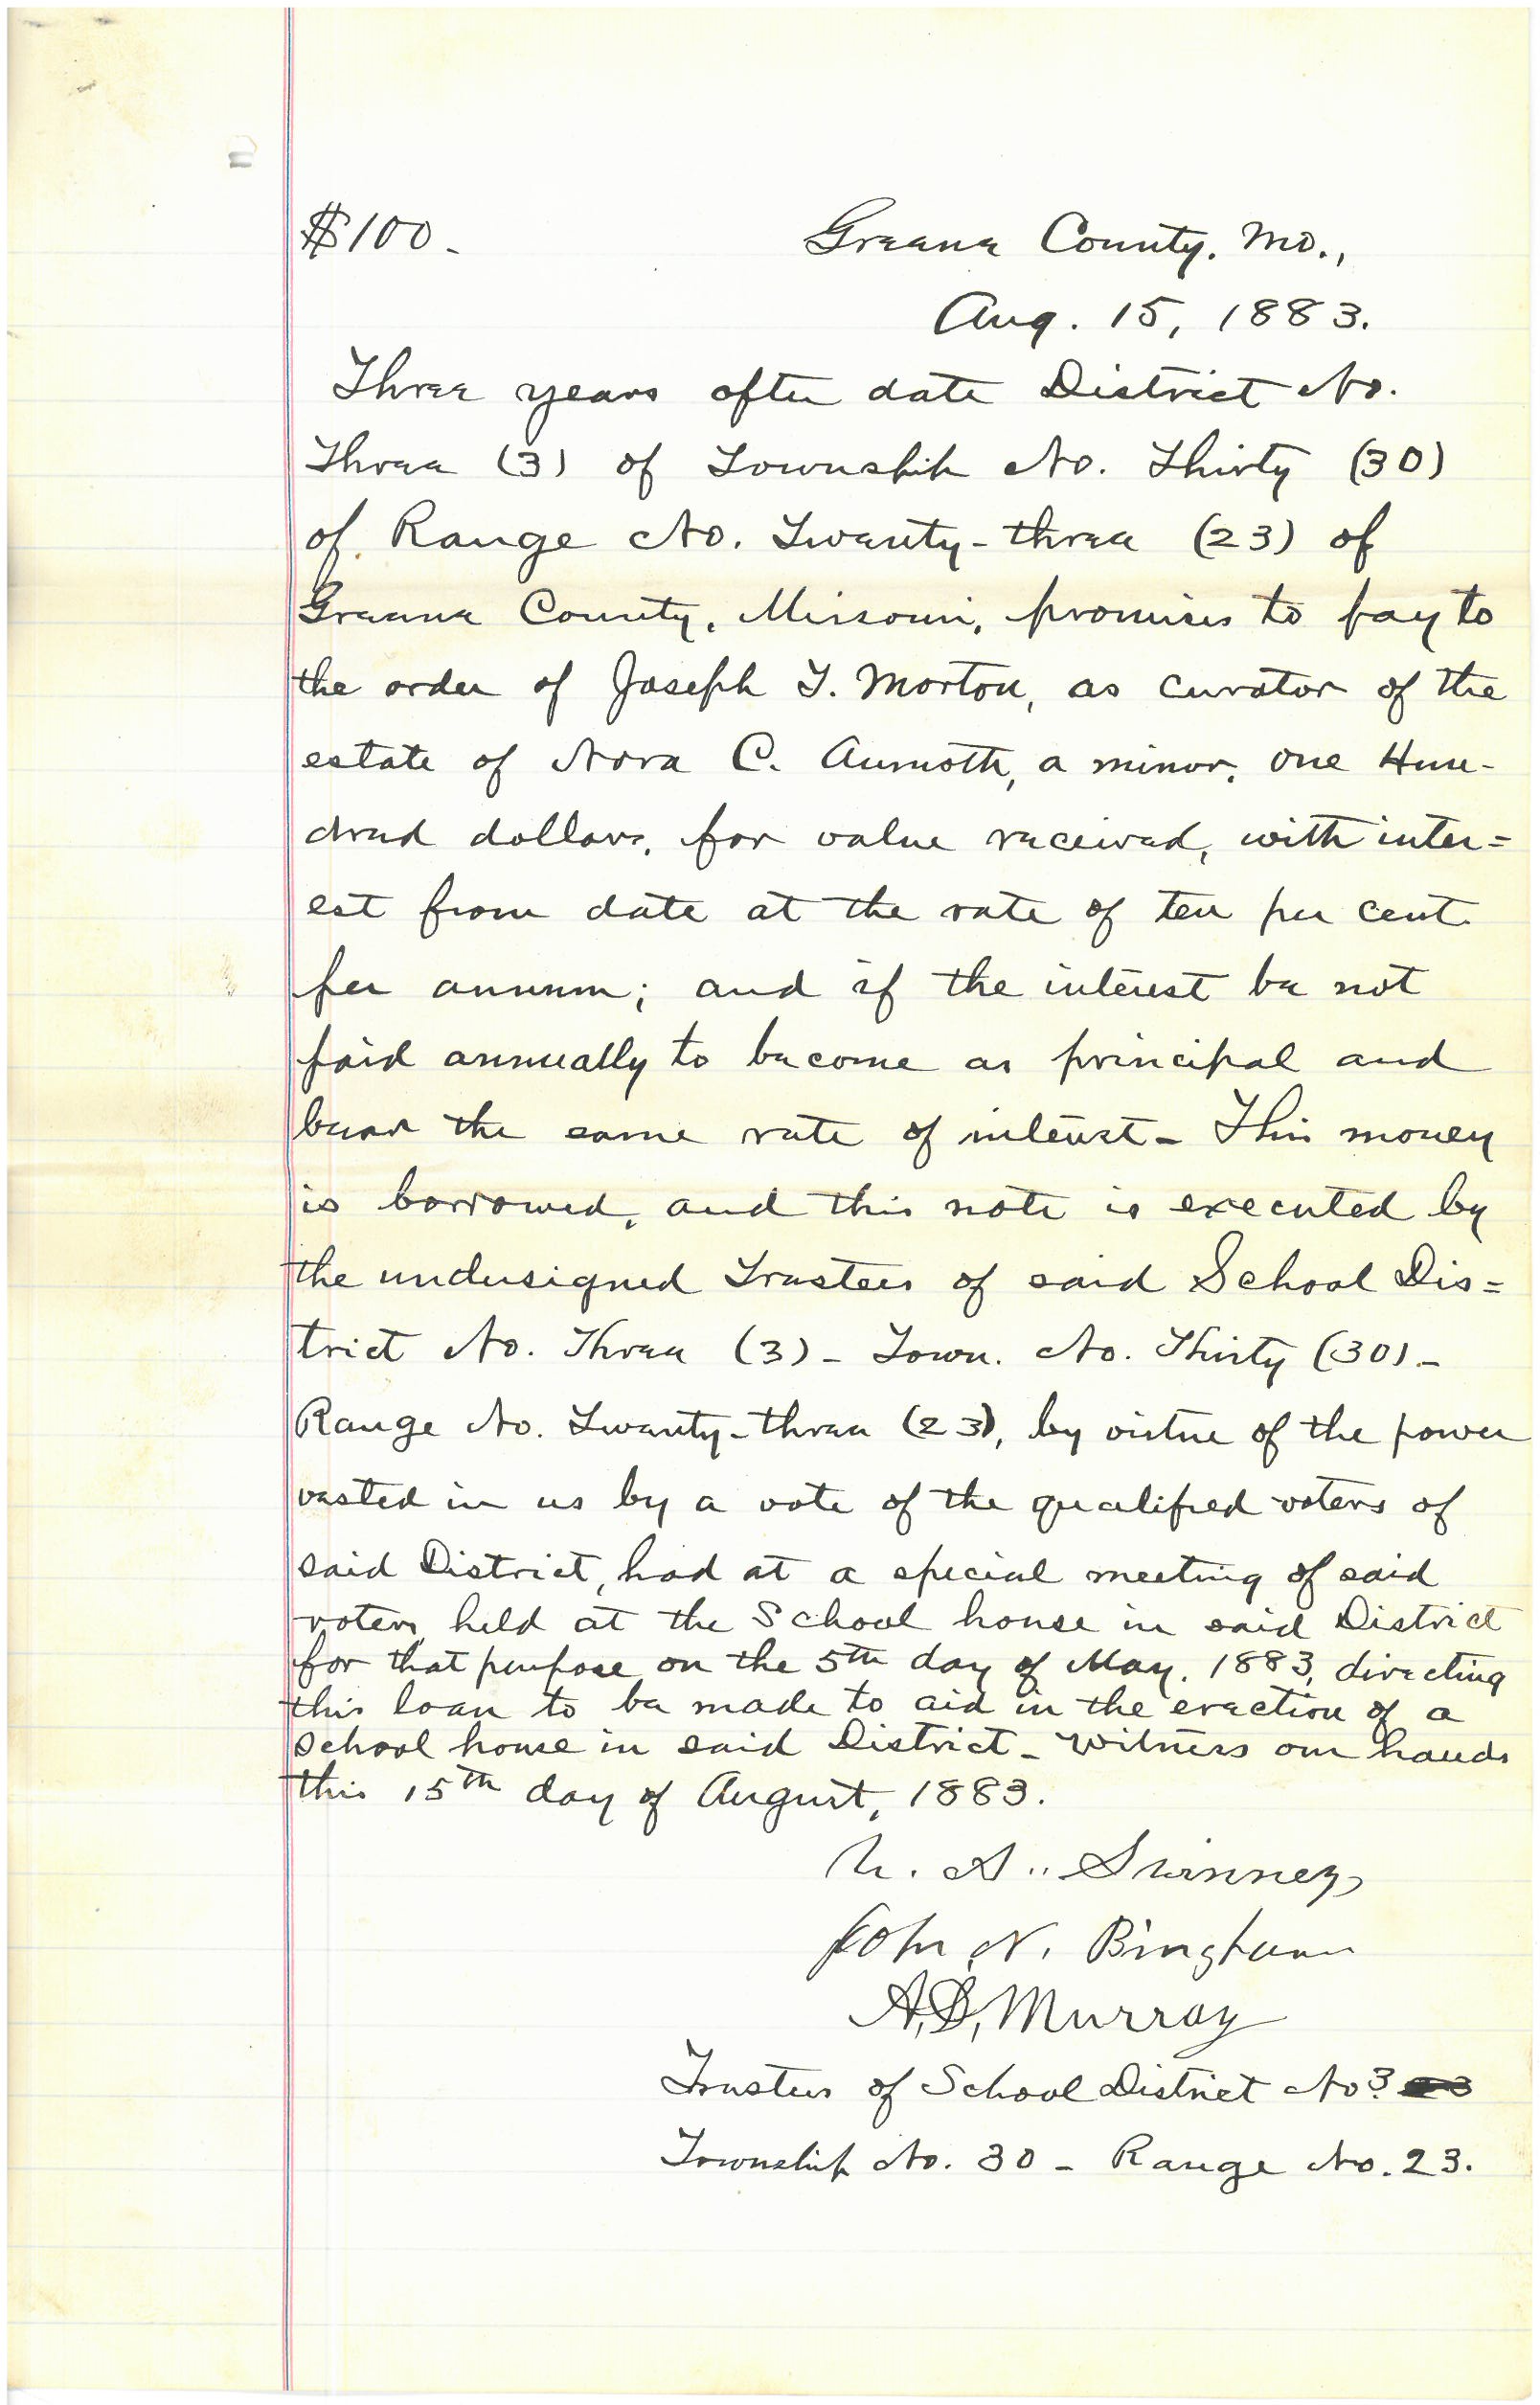 $100.
Greene County, Mo.,
Aug. 15, 1883.
Three years after date District No.
Three (3) of Township No. Thirty (30)
of Range No. Twenty-three (23) of
Greene County, Missouri, promises to pay to
the order of Joseph T. Morton, as curator of the
estate of Nora C. a minor, one Hun-
dred dollars, for value received, with inter=
est from date at the rate of ten per cent.
per annum; and if the interest be not
paid annually to become as principal and
bear the same rate of interest - This money
is borrowed, and this note is executed by
the undersigned Trustees of said School Dis=
trict No. Three (3) - Town. No. Thirty (30) -
Range No. Twenty-three (23), by virtue of the power
vested in us by a vote of the qualified voters of
said District, had at a special meeting of said
voters held at the School house in said District
for that purpose on the 5th day of May, 1883, directing
this loan to be made to aid in the erection of a
school house in said District - Witness our hands
this 15th day of August, 1883.
Swinney
John N. Bingham
A. B. Murray
Trustees of School District No. 3
Township No. 30 - Range No. 23.